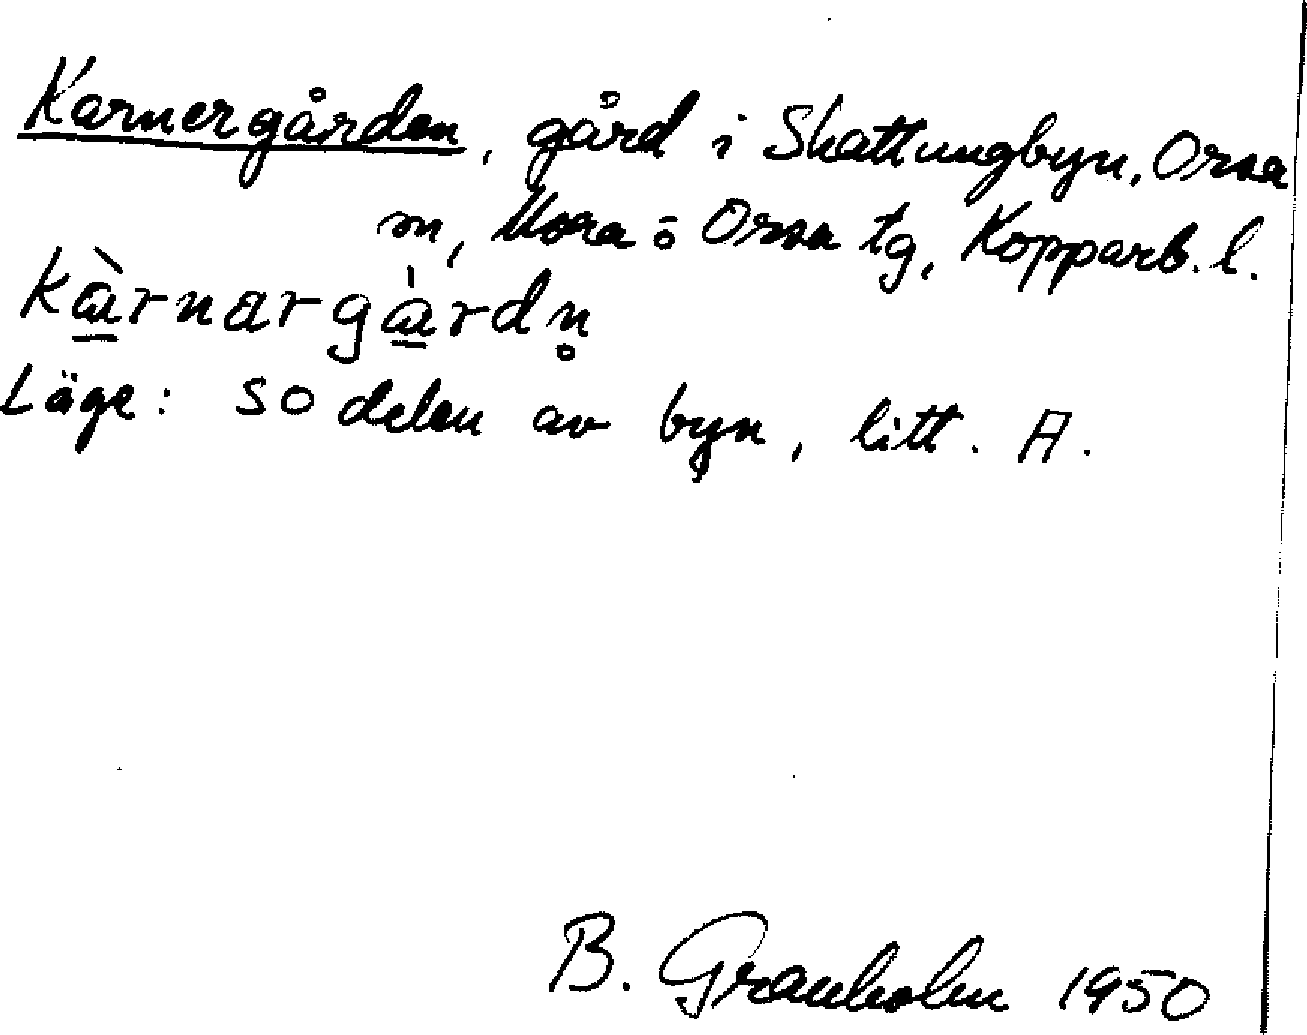 Karnergården, gård i Skattungbyn, Orsa
sn, Mora o Orsa tg, Kopparb. l.
kàrnargàrdn̥
Läge: SO delen av byn, litt. A.
B. Granholm 1950